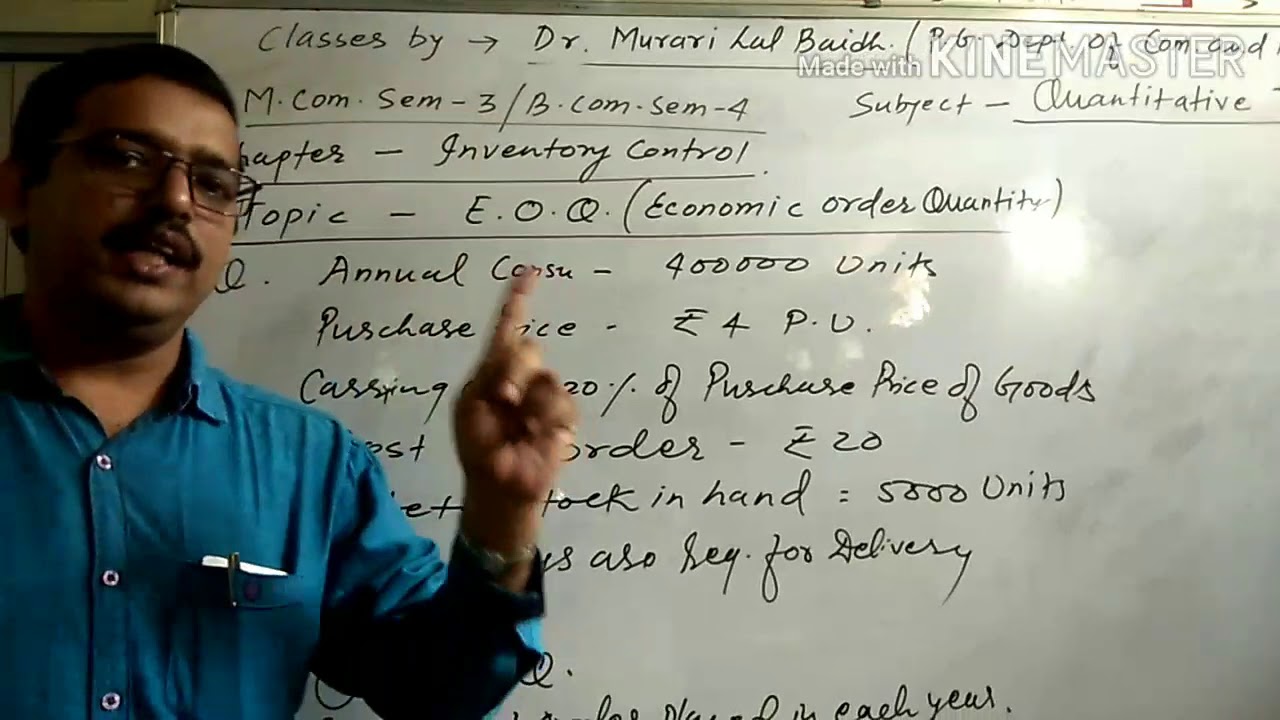 Classes by → Dr. Murari Lal Baidh. (P.G. Dept of Com. and
Made with KINEMASTER
M.Com. Sem - 3 / B.Com. Sem - 4 Subject - Quantitative
hapter - Inventory Control.
Topic - E.O.Q. (Economic order Quantity)
Q. Annual Consu - 400000 Units
Purchase ice - ₹ 4 P.U.
Carrying 20% of Purchase Price of Goods
ost order - ₹ 20
et tock in hand = 5000 Units
ys are Req. for Delivery
Q.
order placed in each year.